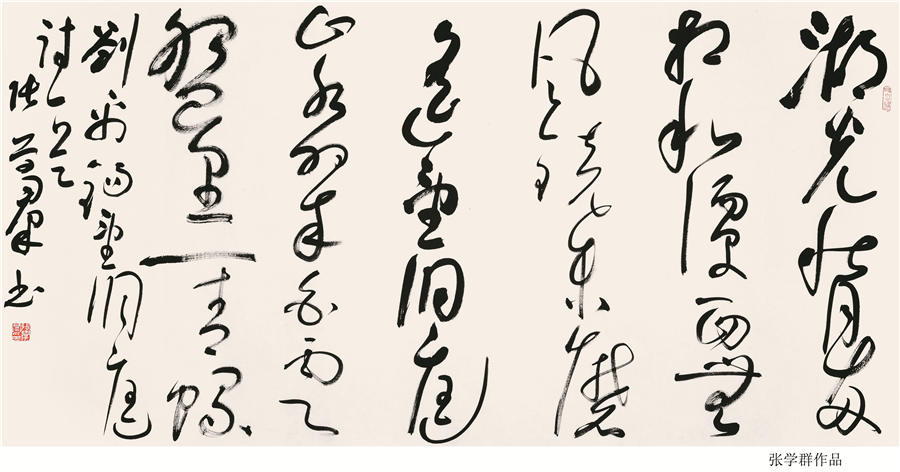 湖光秋月两
相和潭面無
风镜未磨
遥望洞庭
山水翠白银
盤里一青螺
劉禹锡望洞庭
诗一首
张学群书
张学群作品